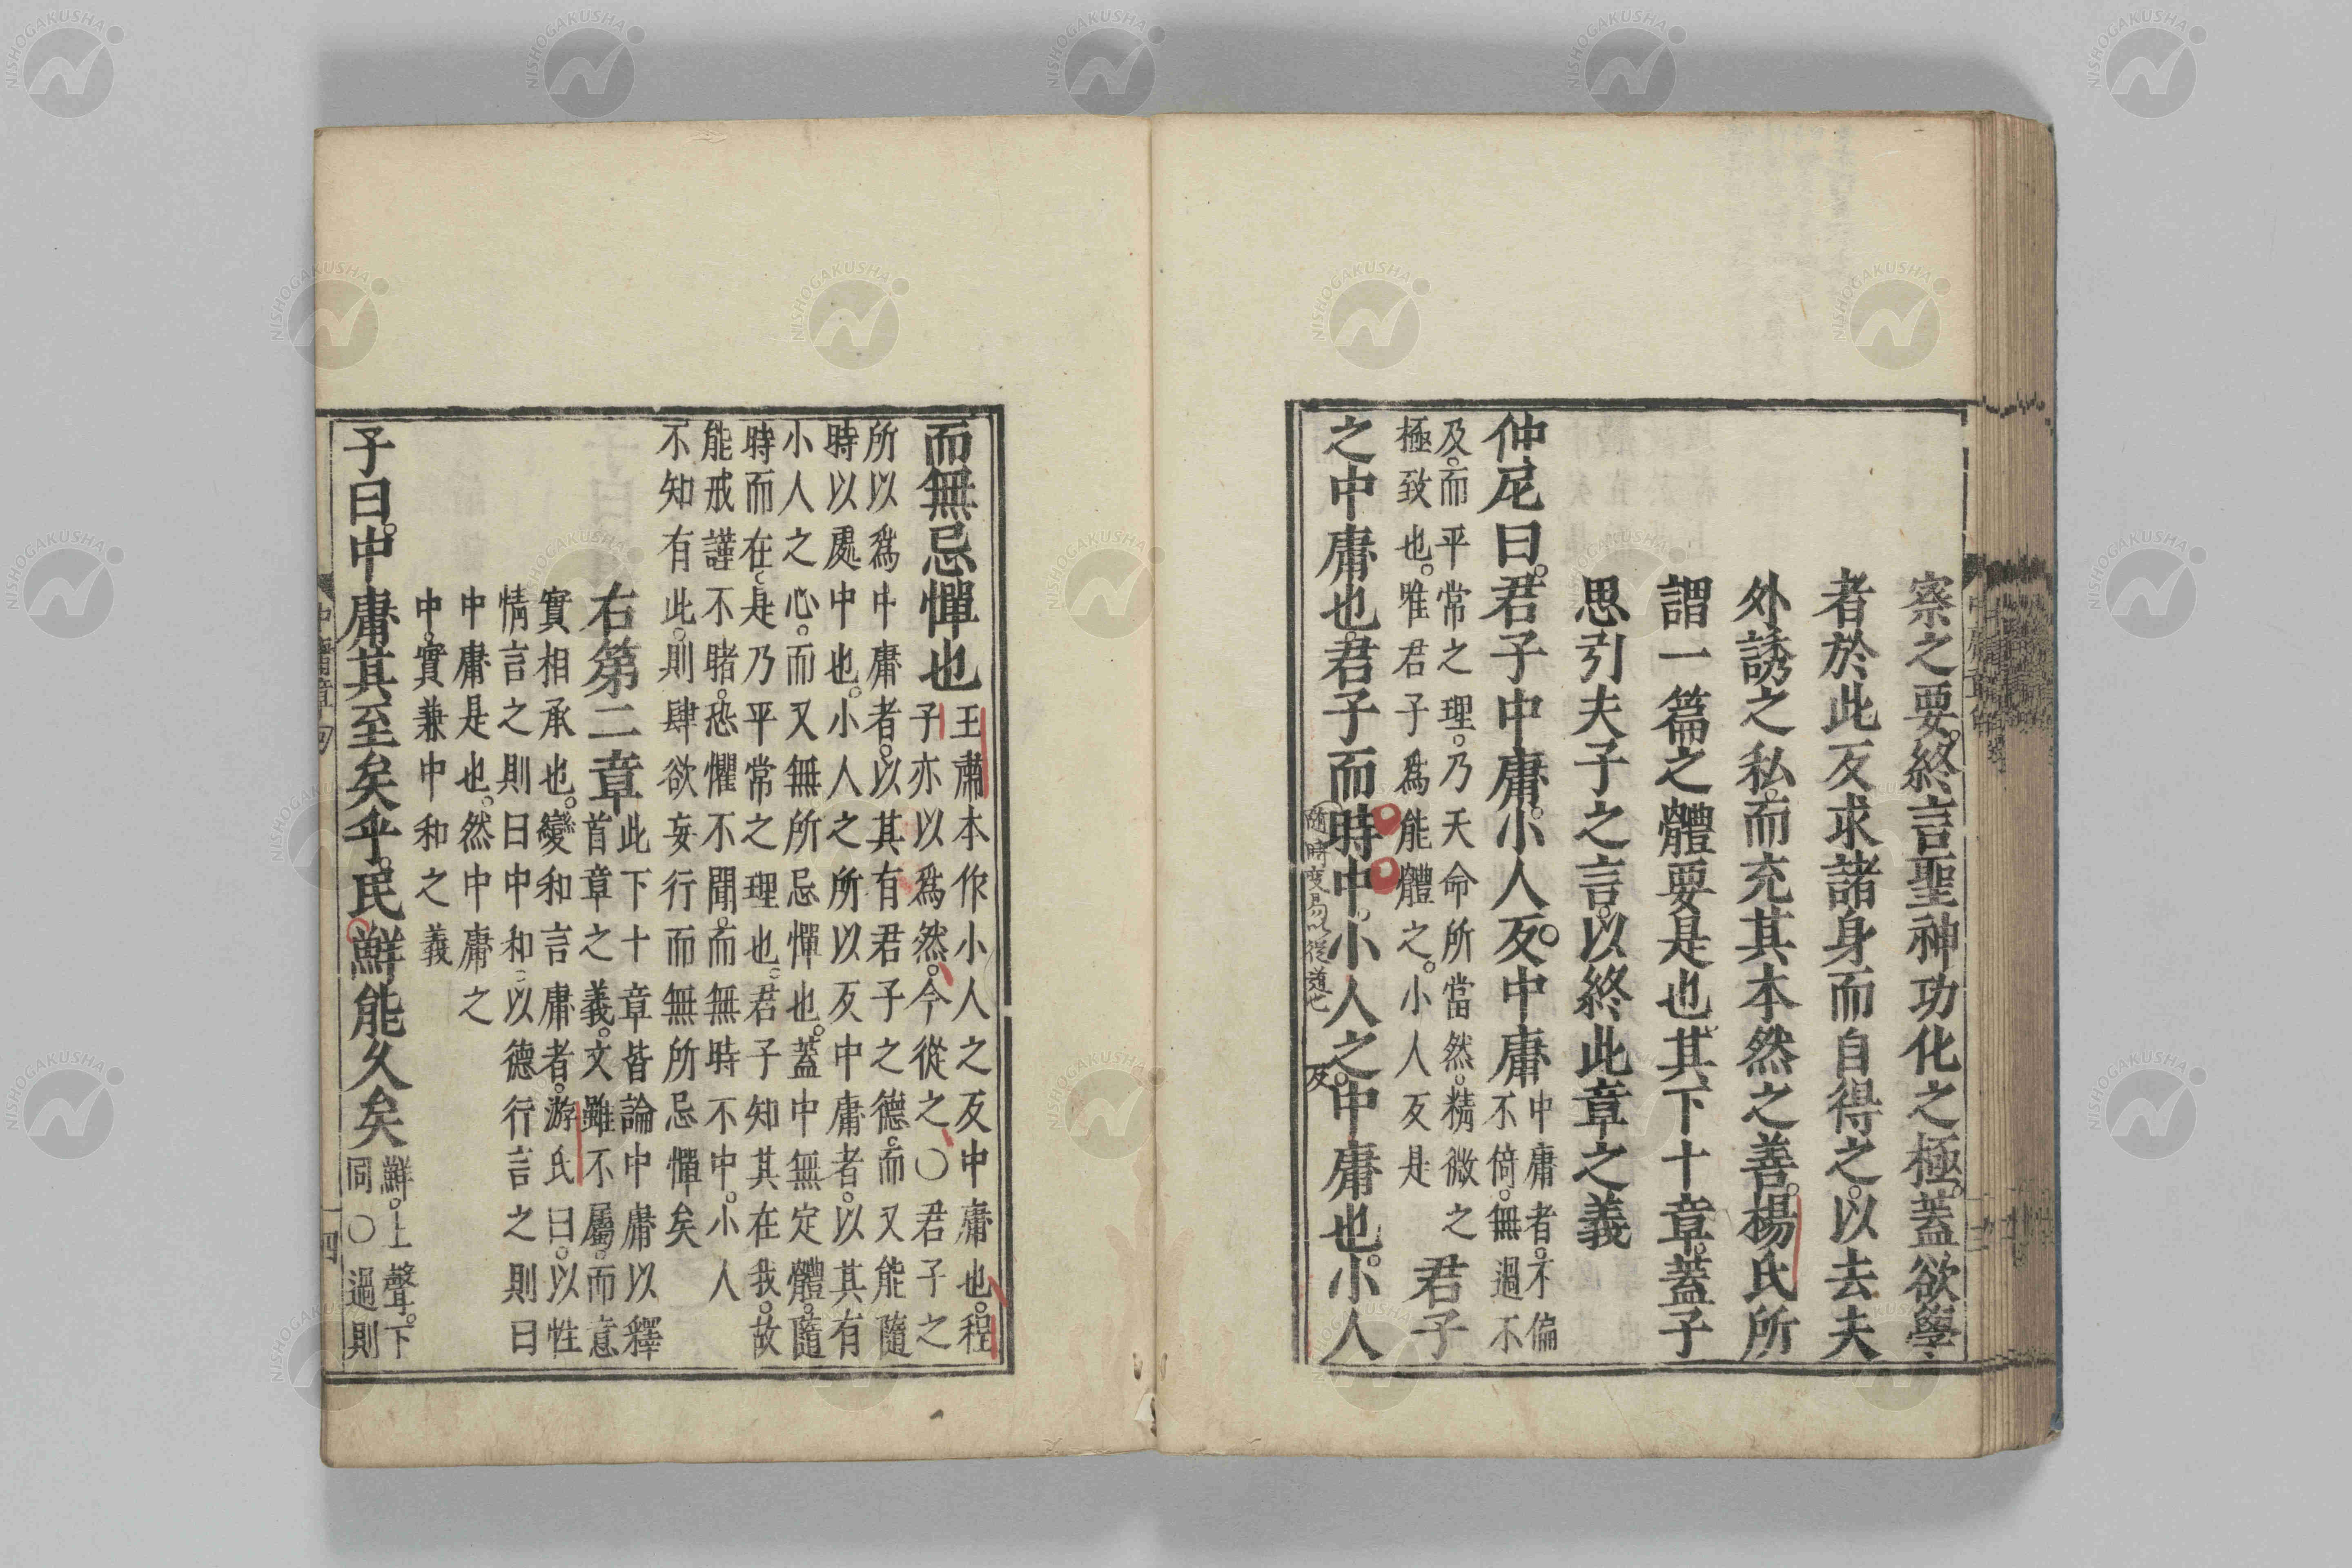 察之要。終言聖神功化之極。蓋欲學
者於此反求諸身而自得之。以去夫
外誘之私。而充其本然之善。楊氏所
謂一篇之體要是也。其下十章。蓋子
思引夫子之言。以終此章之義
仲尼曰。君子中庸。小人反中庸
中庸者。不偏
不倚。無過不
及。而平常之理。乃天命所當然。精微之
極致也。唯君子為能體之。小人反是
君子
之中庸也。君子而時中。小人之中庸也。小人
隨時変易以從道也
反
而無忌憚也
王肅本作小人之反中庸也。程
子亦以為然。今從之。○君子之
所以為中庸者。以其有君子之德。而又能隨
時以處中也。小人之所以反中庸者。以其有
小人之心。而又無所忌憚也。蓋中無定體。隨
時而在。是乃平常之理也。君子知其在我。故
能戒謹不睹。恐懼不聞。而無時不中。小人
不知有此。則肆欲妄行而無所忌憚矣
右第二章
此下十章皆論中庸以釋
首章之義。文雖不屬。而意
實相承也。變和言庸者。游氏曰。以性
情言之則曰中和。以德行言之則曰
中庸是也。然中庸之
中。實兼中和之義
子曰。中庸其至矣乎。民鮮能久矣
鮮。上聲。下
同○過則
中庸章句
四
NISHOGAKUSHA